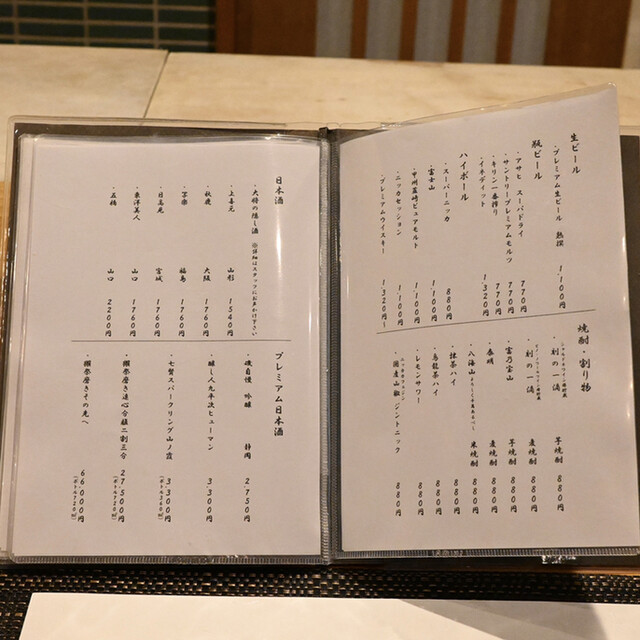 生ビール
・プレミアム生ビール 熟撰 1,100円
瓶ビール
・アサヒ スーパードライ 770円
・サントリープレミアムモルツ 770円
・キリン一番搾り 770円
・イネディット 1,320円
ハイボール
・スーパーニッカ 880円
・富士山 1,100円
・甲州韮崎ピュアモルト 1,100円
・ニッカセッション 1,100円
・プレミアムウイスキー 1,320円~
焼酎・割り物
・利の一滴 芋焼酎 880円
・利の一滴 麦焼酎 880円
・富乃宝山 芋焼酎 880円
麦焼酎 880円
・八海山 米焼酎 880円
・抹茶ハイ 880円
・烏龍茶ハイ 880円
・レモンサワー 880円
・国産山椒ジントニック 880円
日本酒
・大将の隠し酒 ※詳細はスタッフにお尋ね下さい
・上喜元 山形 1540円
・秋鹿 大阪 1760円
・写楽 福島 1760円
・日高見 宮城 1760円
・東洋美人 山口 1760円
・五橋 山口 2200円
プレミアム日本酒
・磯自慢 吟醸 静岡 2,750円
・醸し人九平次ヒューマン 3,300円
・七賢スパークリング山ノ霞 3,300円
(ボトル360ml)
・獺祭磨き遠心分離二割三分 27,500円
(ボトル720ml)
・獺祭磨きその先へ 66000円
(ボトル720ml)